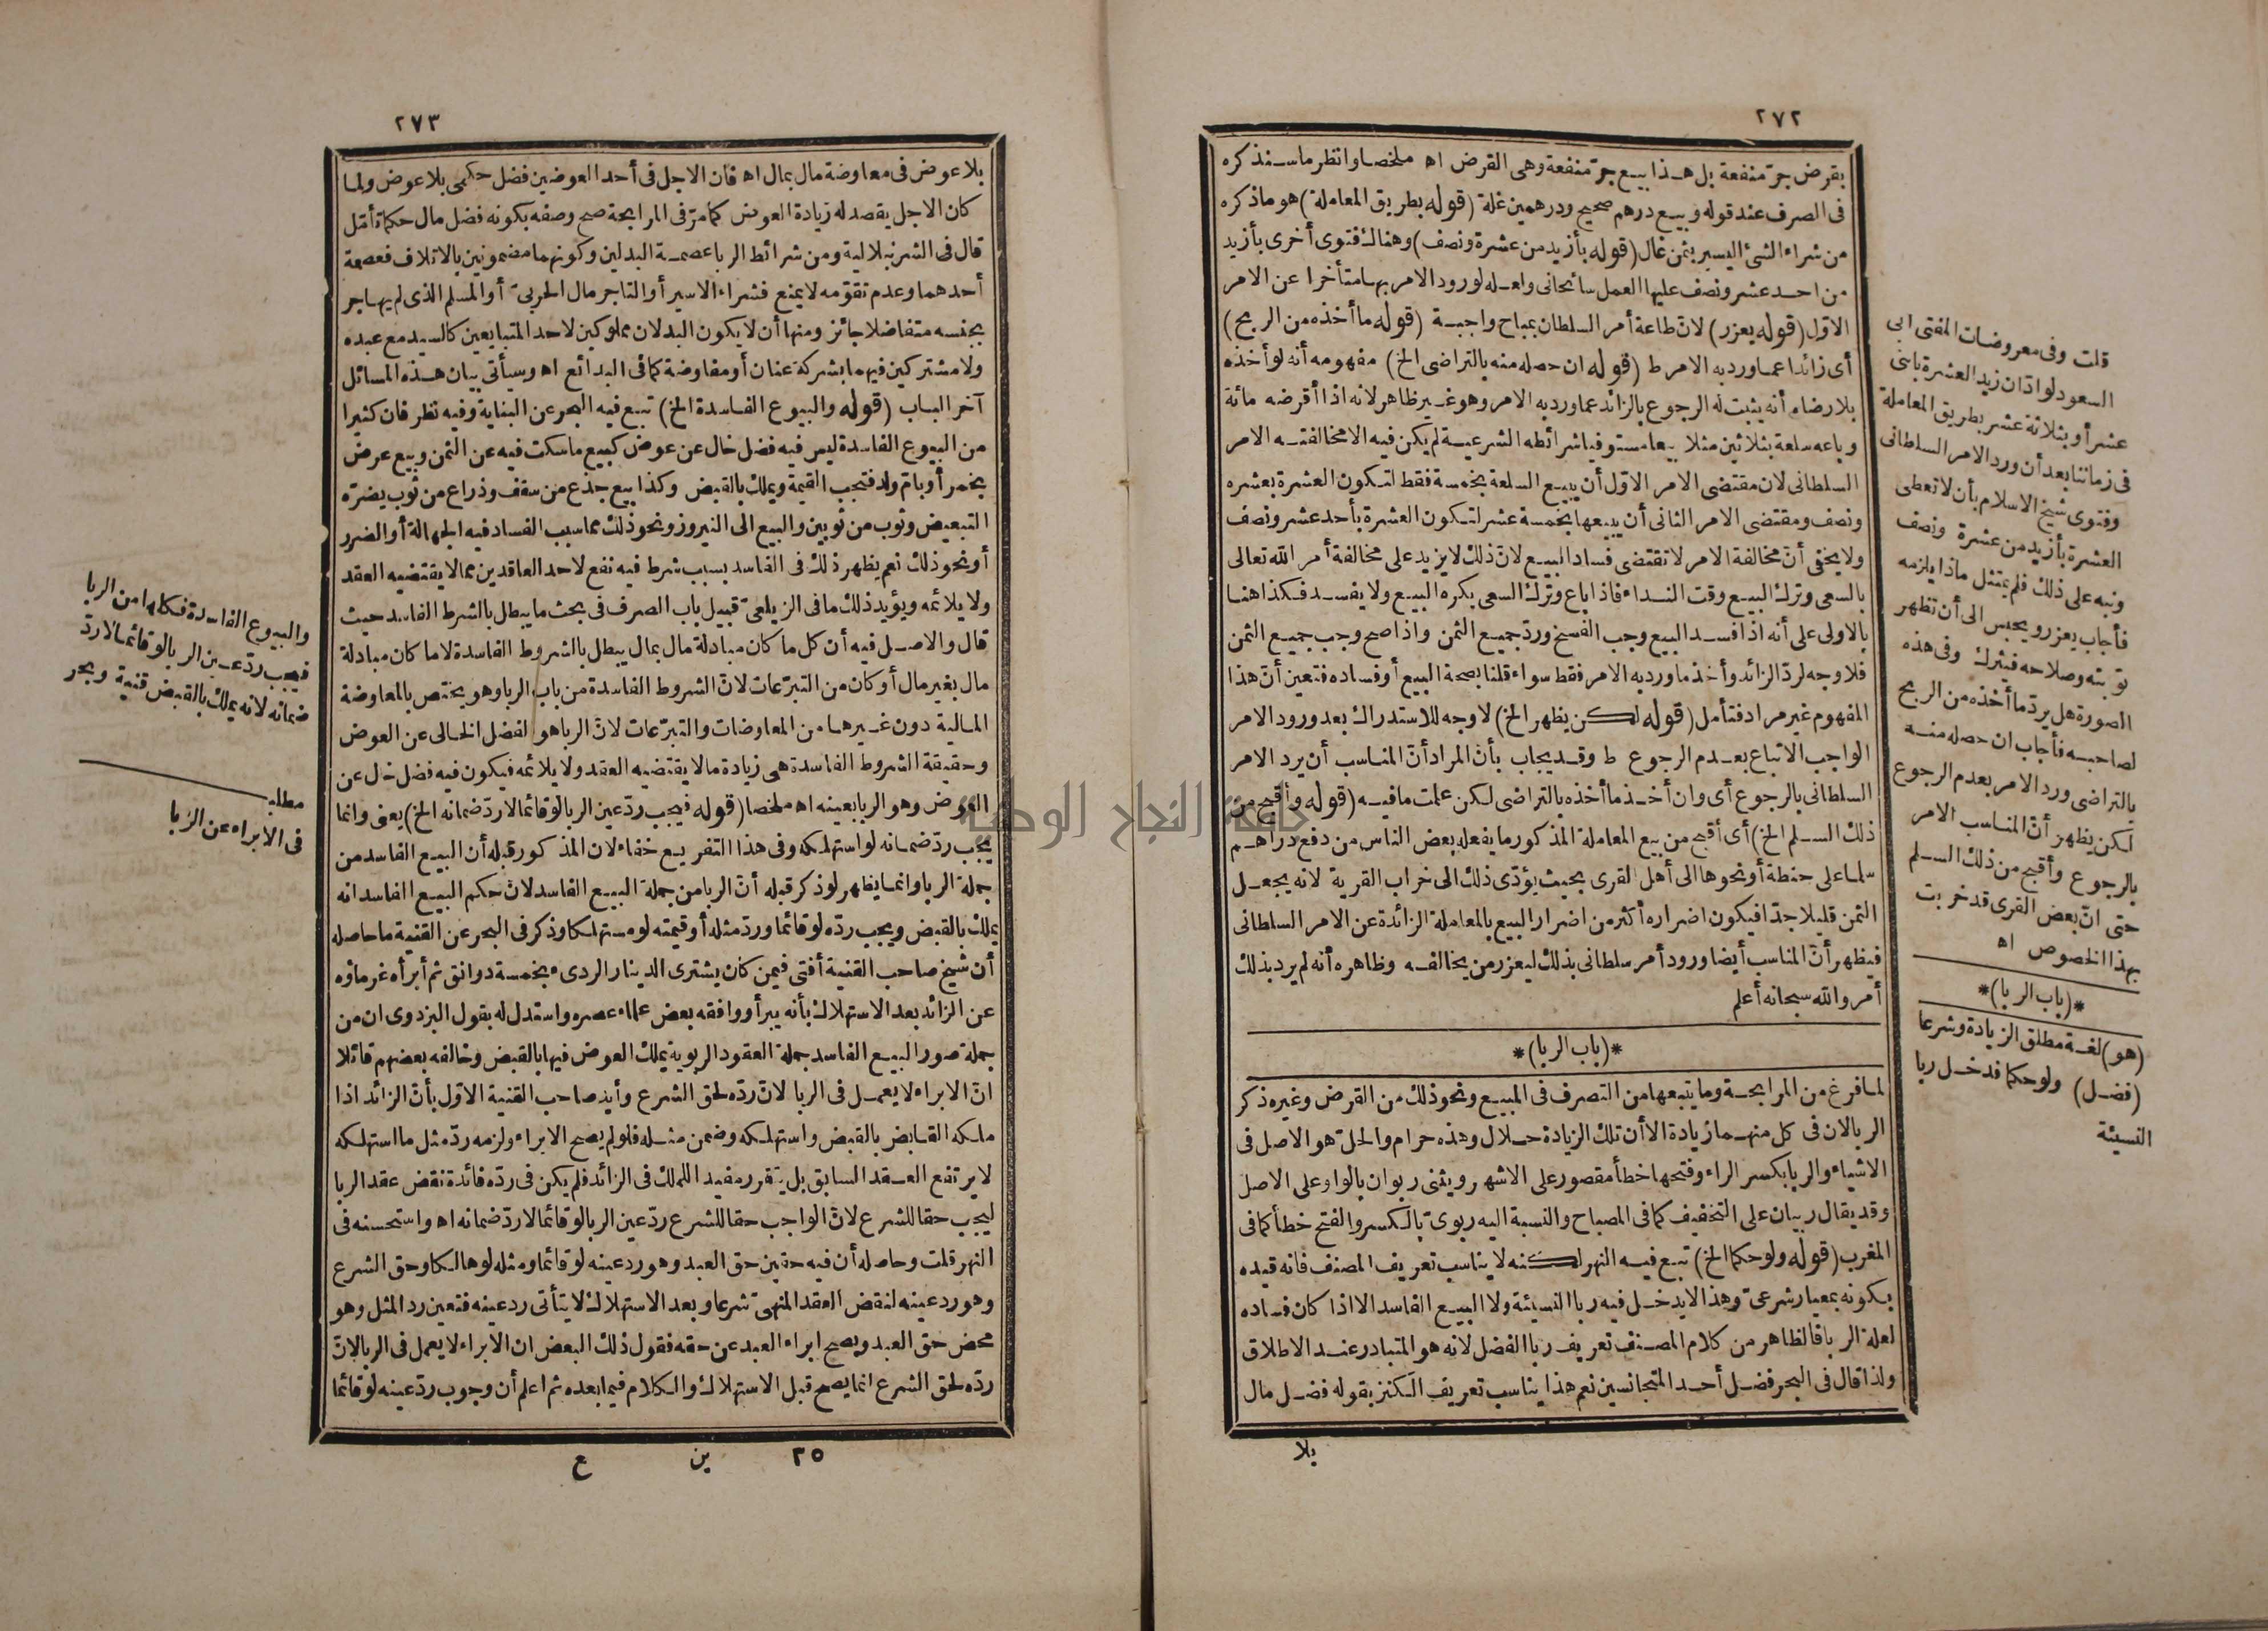 ٢٧٢
بقرض جرّ منفعة بل هـذا بيـع جرّ منفعة وهى القرض اه ملخصا وانظر ما سـنذكره
فى الصرف عند قوله وبيـع درهم صحيح ودرهمين غلة (قوله بطريق المعاملة) هو ما ذكره
من شراء الشئ اليسير بثمن غال (قوله بأزيد من عشرة ونصف) وهناك فتوى أخرى بأزيد
من احـد عشر ونصف عليها العمل سائحانى ولعـله لورود الامر بهـا متأخرا عن الامر
الاوّل (قوله يعزر) لانّ طاعة أمر السلطان بمباح واجبـة (قوله ما أخذه من الربح)
أى زائدا عمـا ورد به الامر ط (قوله ان حصله منه بالتراضى الخ) مفهومه أنه لو أخذه
بلا رضاه أنه يثبت له الرجوع بالزائد عما ورد به الامر وهو غـير ظاهر لانه اذا أقرضه مائة
وباعه سلعة بثلاثين مثلا بيعا مستوفيا شرائطه الشرعيـة لم يكن فيه الا مخالفتـه الامر
السلطانى لان مقتضى الامر الاوّل أن يبيـع السلعة بخمسة فقط لتكون العشرة بعشره
ونصف ومقتضى الامر الثانى أن يبيعها بخمسة عشر لتكون العشرة بأحد عشر ونصف
ولا يخفى أنّ مخالفة الامر لا تقتضى فساد البيـع لانّ ذلك لا يزيد على مخالفة أمر الله تعالى
بالسعى وترك البيـع وقت النـداء فاذا باع وترك السعى يكره البيـع ولا يفسـد فـكذا هنـا
بالاولى على أنه اذا فسـد البيع وجب الفسخ وردّ جميـع الثمن واذا صح وجب جميـع الثمن
فلا وجه لردّ الزائد وأخذ ما ورد به الامر فقط سواء قلنا بصحة البيع أو فساده فتعين أنّ هذا
المفهوم غير مراد فتأمل (قوله لكن يظهر الخ) لا وجه للاستدراك بعد ورود الامر
الواجب الاتباع بعـدم الرجوع ط وقـد يجاب بأنّ المراد أنّ المناسب أن يرد الامر
السلطانى بالرجوع أى وان أخـذ ما أخذه بالتراضى لكن علمت ما فيـه (قوله وأقبح من
ذلك السـلم الخ) أى أقبح من بيع المعاملة المذكور ما يفعله بعض الناس من دفع دراهـم
سلما على حنطة أو نحوها الى أهل القرى بحيث يؤدّى ذلك الى خراب القرية لانه يجعـل
الثمن قليلا جدّا فيكون اضراره أكثر من اضرار البيـع بالمعاملة الزائدة عن الامر السلطانى
فيظهر أنّ المناسب أيضا ورود أمر سلطانى بذلك ليعزر من يخالفـه وظاهره أنه لم يرد بذلك
أمر والله سبحانه أعلم
*(باب الربا)*
لمـا فرغ من المرابحـة وما يتبعها من التصرف فى المبيـع ونحو ذلك من القرض وغيره ذكر
الربا لان فى كل منهـما زيادة الا أن تلك الزيادة حـلال وهذه حرام والحلّ هو الاصل فى
الاشياء والربا بكسر الراء وفتحها خطأ مقصور على الاشهر ويثنى ربوان بالواو على الاصل
وقد يقال ربيان على التخفيف كما فى المصباح والنسبة اليه ربوىّ بالكسر والفتح خطأ كما فى
المغرب (قوله ولو حكما الخ) تبـع فيـه النهر لكنه لا يناسب تعريف المصنف فانه قيده
بكونه بمعيار شرعىّ وهذا لا يدخـل فيه ربا النسيئة ولا البيـع الفاسد الا اذا كان فساده
لعلة الربا فالظاهر من كلام المصـنف تعريف ربا الفضل لانه هو المتبادر عنـد الاطلاق
ولذا قال فى البحر فضـل أحـد المتجانسين نعم هذا يناسب تعريف الكنز بقوله فضـل مال
بلا
قلت وفى معروضات المفتى ابى
السعود لو ادّان زيد العشرة باثنى
عشر أو بثلاثة عشر بطريق المعاملة
فى زماننا بعد أن ورد الامر السلطانى
وفتوى شيخ الاسلام بأن لا تعطى
العشرة بأزيد من عشرة ونصف
ونبه على ذلك فلم يمتثل ماذا يلزمه
فأجاب يعزر ويحبس الى أن تظهر
توبته وصلاحه فيترك وفى هذه
الصورة هل يردّ ما أخذه من الربح
لصاحبـه فأجاب ان حصله منـه
بالتراضى ورد الامر بعدم الرجوع
لكن يظهر أنّ المناسب الامر
بالرجوع وأقبح من ذلك السـلم
حتى انّ بعض القرى قد خربت
بهذا الخصوص اه
*(باب الربا)*
(هو) لغـة مطلق الزيادة وشرعا
(فضـل) ولو حكما فدخـل ربا
النسيئة
٢٧٣
بلا عوض فى معاوضة مال بمال اه فان الاجل فى أحد العوضين فضل حكمى بلا عوض ولما
كان الاجل يقصد له زيادة العوض كما مرّ فى المرابحة صح وصفه بكونه فضل مال حكما تأمّل
قال فى الشرنبلالية ومن شرائط الربا عصمـة البدلين وكونهما مضمونين بالاتلاف فعصمة
أحدهما وعدم تقوّمه لا يمنع فشراء الاسير أو التاجر مال الحربىّ أو المسلم الذى لم يهـاجر
بجنسه متفاضلا جائز ومنها أن لا يكون البدلان مملوكين لاحد المتبايعين كالسيد مع عبده
ولا مشتركين فيهما بشركة عنان أو مفاوضة كما فى البدائع اه وسيأتى بيان هـذه المسائل
آخر البـاب (قوله والبيوع الفـاسدة الخ) تبـع فيه البحر عن البناية وفيه نظر فان كثيرا
من البيوع الفاسدة ليس فيه فضل خال عن عوض كبيع ما سكت فيه عن الثمن وبيع عرض
بخمر أو بأمّ ولد فتجب القيمة ويملك بالقبض وكذا بيع جذع من سقف وذراع من ثوب يضرّه
التبعيض وثوب من ثوبين والبيع الى النيروز ونحو ذلك مما سبب الفساد فيه الجهالة أو الضرر
أو نحو ذلك نعم يظهر ذلك فى الفاسد بسبب شرط فيه نفع لاحد العاقدين ممالا يقتضيه العقد
ولا يلائمه ويؤيد ذلك ما فى الزيلعىّ قبيل باب الصرف فى بحث ما يبطل بالشرط الفاسد حيث
قال والاصـل فيه أن كل ما كان مبادلة مال بمال يبطل بالشروط الفاسدة لا ما كان مبادلة
مال بغير مال أو كان من التبرّعات لانّ الشروط الفاسدة من باب الربا وهو يختص بالمعاوضة
المـالية دون غـيرهـا من المعاوضات والتبرّعات لانّ الربا هو الفضل الخـالى عن العوض
وحقيقة الشروط الفاسدة هى زيادة ما لا يقتضيه العقد ولا يلائمه فيكون فيه فضل خال عن
العوض وهو الربا بعينه اه ملخصا (قوله فيجب ردّ عين الربا لو قائما لا ردّ ضمانه الخ) يعنى وانما
يجب ردّ ضمـانه لو استهلـكه وفى هذا التفريـع خفاء لان المذكور قبله أن البيـع الفاسد من
جملة الربا وانمـا يظهر لو ذكر قبله أنّ الربا من جملة البيـع الفاسد لانّ حكم البيـع الفاسد انه
يملك بالقبض ويجب ردّه لو قائما وردّ مثله أو قيمته لو مستهلـكا وذكر فى البحر عن القنية ما حاصله
أن شيخ صاحب القنية أفتى فيمن كان يشترى الدينار الردىء بخمسة دوانق ثم أبرأه غرماؤه
عن الزائد بعد الاستهلاك بأنه يبرأ ووافقه بعض علماء عصره واستدل له بقول البزدوى ان من
جملة صور البيـع الفاسد جملة العقود الربوية يملك العوض فيها بالقبض وخالفه بعضهم قائلا
انّ الابراء لا يعمـل فى الربا لانّ ردّه لحق الشرع وأيد صاحب القنية الاوّل بأنّ الزائد اذا
ملكه القـابض بالقبض واستهلـكه وضمن مثـله فلو لم يصح الابراء ولزمه ردّ مثل ما استهلـكه
لا يرتفع العـقد السابق بل يتقرر مفيد الملك فى الزائد فلم يكن فى ردّه فائدة نقض عقد الربا
ليجب حقا للشرع لانّ الواجب حقا للشرع ردّ عين الربا لو قائما لا ردّ ضمانه اه واستحسنه فى
النهر قلت وحاصله أن فيه حقين حق العبد وهو رد عينه لو قائما ومثله لو هالـكا وحق الشرع
وهو رد عينه لنقض العقد المنهىّ شرعا وبعد الاستهلاك لا يتأتى رد عينه فتعين رد المثل وهو
محض حق العبد ويصح ابراء العبد عن حقه فقول ذلك البعض ان الابراء لا يعمل فى الربا لانّ
ردّه لحق الشرع انما يصح قبل الاستهلاك والـكلام فيما بعده ثم اعلم أن وجوب ردّ عينه لو قائما
٣٥ ين ع
والبيوع الفاسدة فكلها من الربا
فيجب ردّ عـين الربا لو قائمـا لا ردّ
ضمانه لانه يملك بالقبض قنية وبحر
مطلب
فى الابراء عن الربا
جامعة النجاح الوطنية